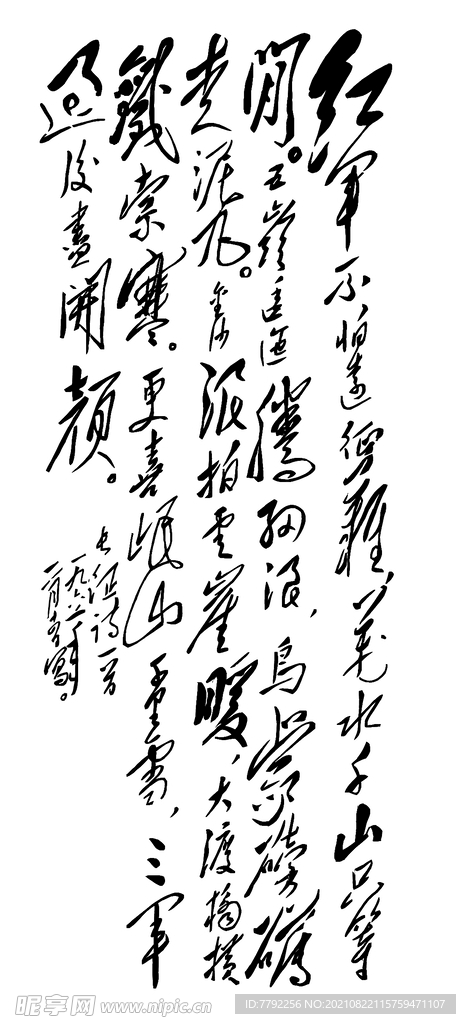 红军不怕远征难，万水千山只等
闲。五岭逶迤腾细浪，乌蒙磅礴
走泥丸。金沙浪拍云崖暖，大渡桥横
铁索寒。更喜岷山千里雪，三军
过后尽开颜。
长征诗一首
一九六二年
二月书写。
昵享网 www.nipic.cn
ID:7792256 NO:20210822115759471107